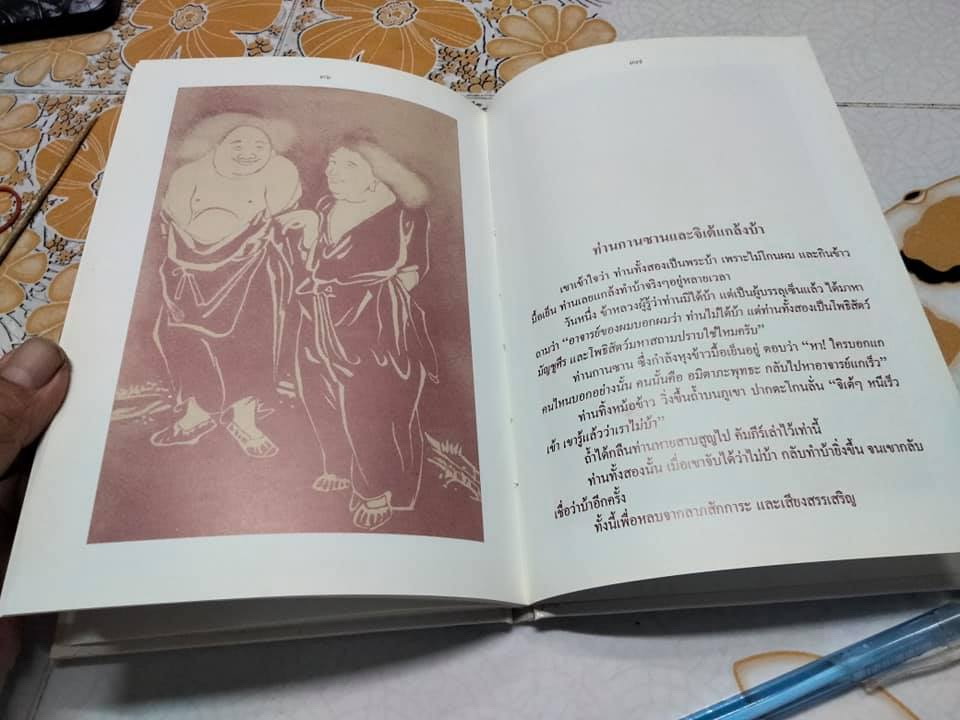 ๓๖
๓๗
ท่านกานซานและจิเต้แกล้งบ้า
เขาเข้าใจว่า ท่านทั้งสองเป็นพระบ้า เพราะไม่โกนผม และกินข้าว
มื้อเย็น ท่านเลยแกล้งทำบ้าจริงๆอยู่หลายเวลา
วันหนึ่ง ข้าหลวงผู้รู้ว่าท่านมิได้บ้า แต่เป็นผู้บรรลุเซ็นแล้ว ได้มาหา
ถามว่า “อาจารย์ของผมบอกผมว่า ท่านไม่ได้บ้า แต่ท่านทั้งสองเป็นโพธิสัตว์
มัญชุศรี และโพธิสัตว์มหาสถามปราบใช่ไหมครับ”
ท่านกานซาน ซึ่งกำลังหุงข้าวมื้อเย็นอยู่ ตอบว่า “หา! ใครบอกแก
คนไหนบอกอย่างนั้น คนนั้นคือ อมิตาภะพุทธะ กลับไปหาอาจารย์แกเร็ว”
ท่านทิ้งหม้อข้าว วิ่งขึ้นถ้ำบนภูเขา ปากตะโกนลั่น “จิเต้ๆ หนีเร็ว
เข้า เขารู้แล้วว่าเราไม่บ้า”
ถ้ำได้กลืนท่านหายสาบสูญไป คัมภีร์เล่าไว้เท่านี้
ท่านทั้งสองนั้น เมื่อเขาจับได้ว่าไม่บ้า กลับทำบ้ายิ่งขึ้น จนเขากลับ
เชื่อว่าบ้าอีกครั้ง
ทั้งนี้เพื่อหลบจากลาภสักการะ และเสียงสรรเสริญ